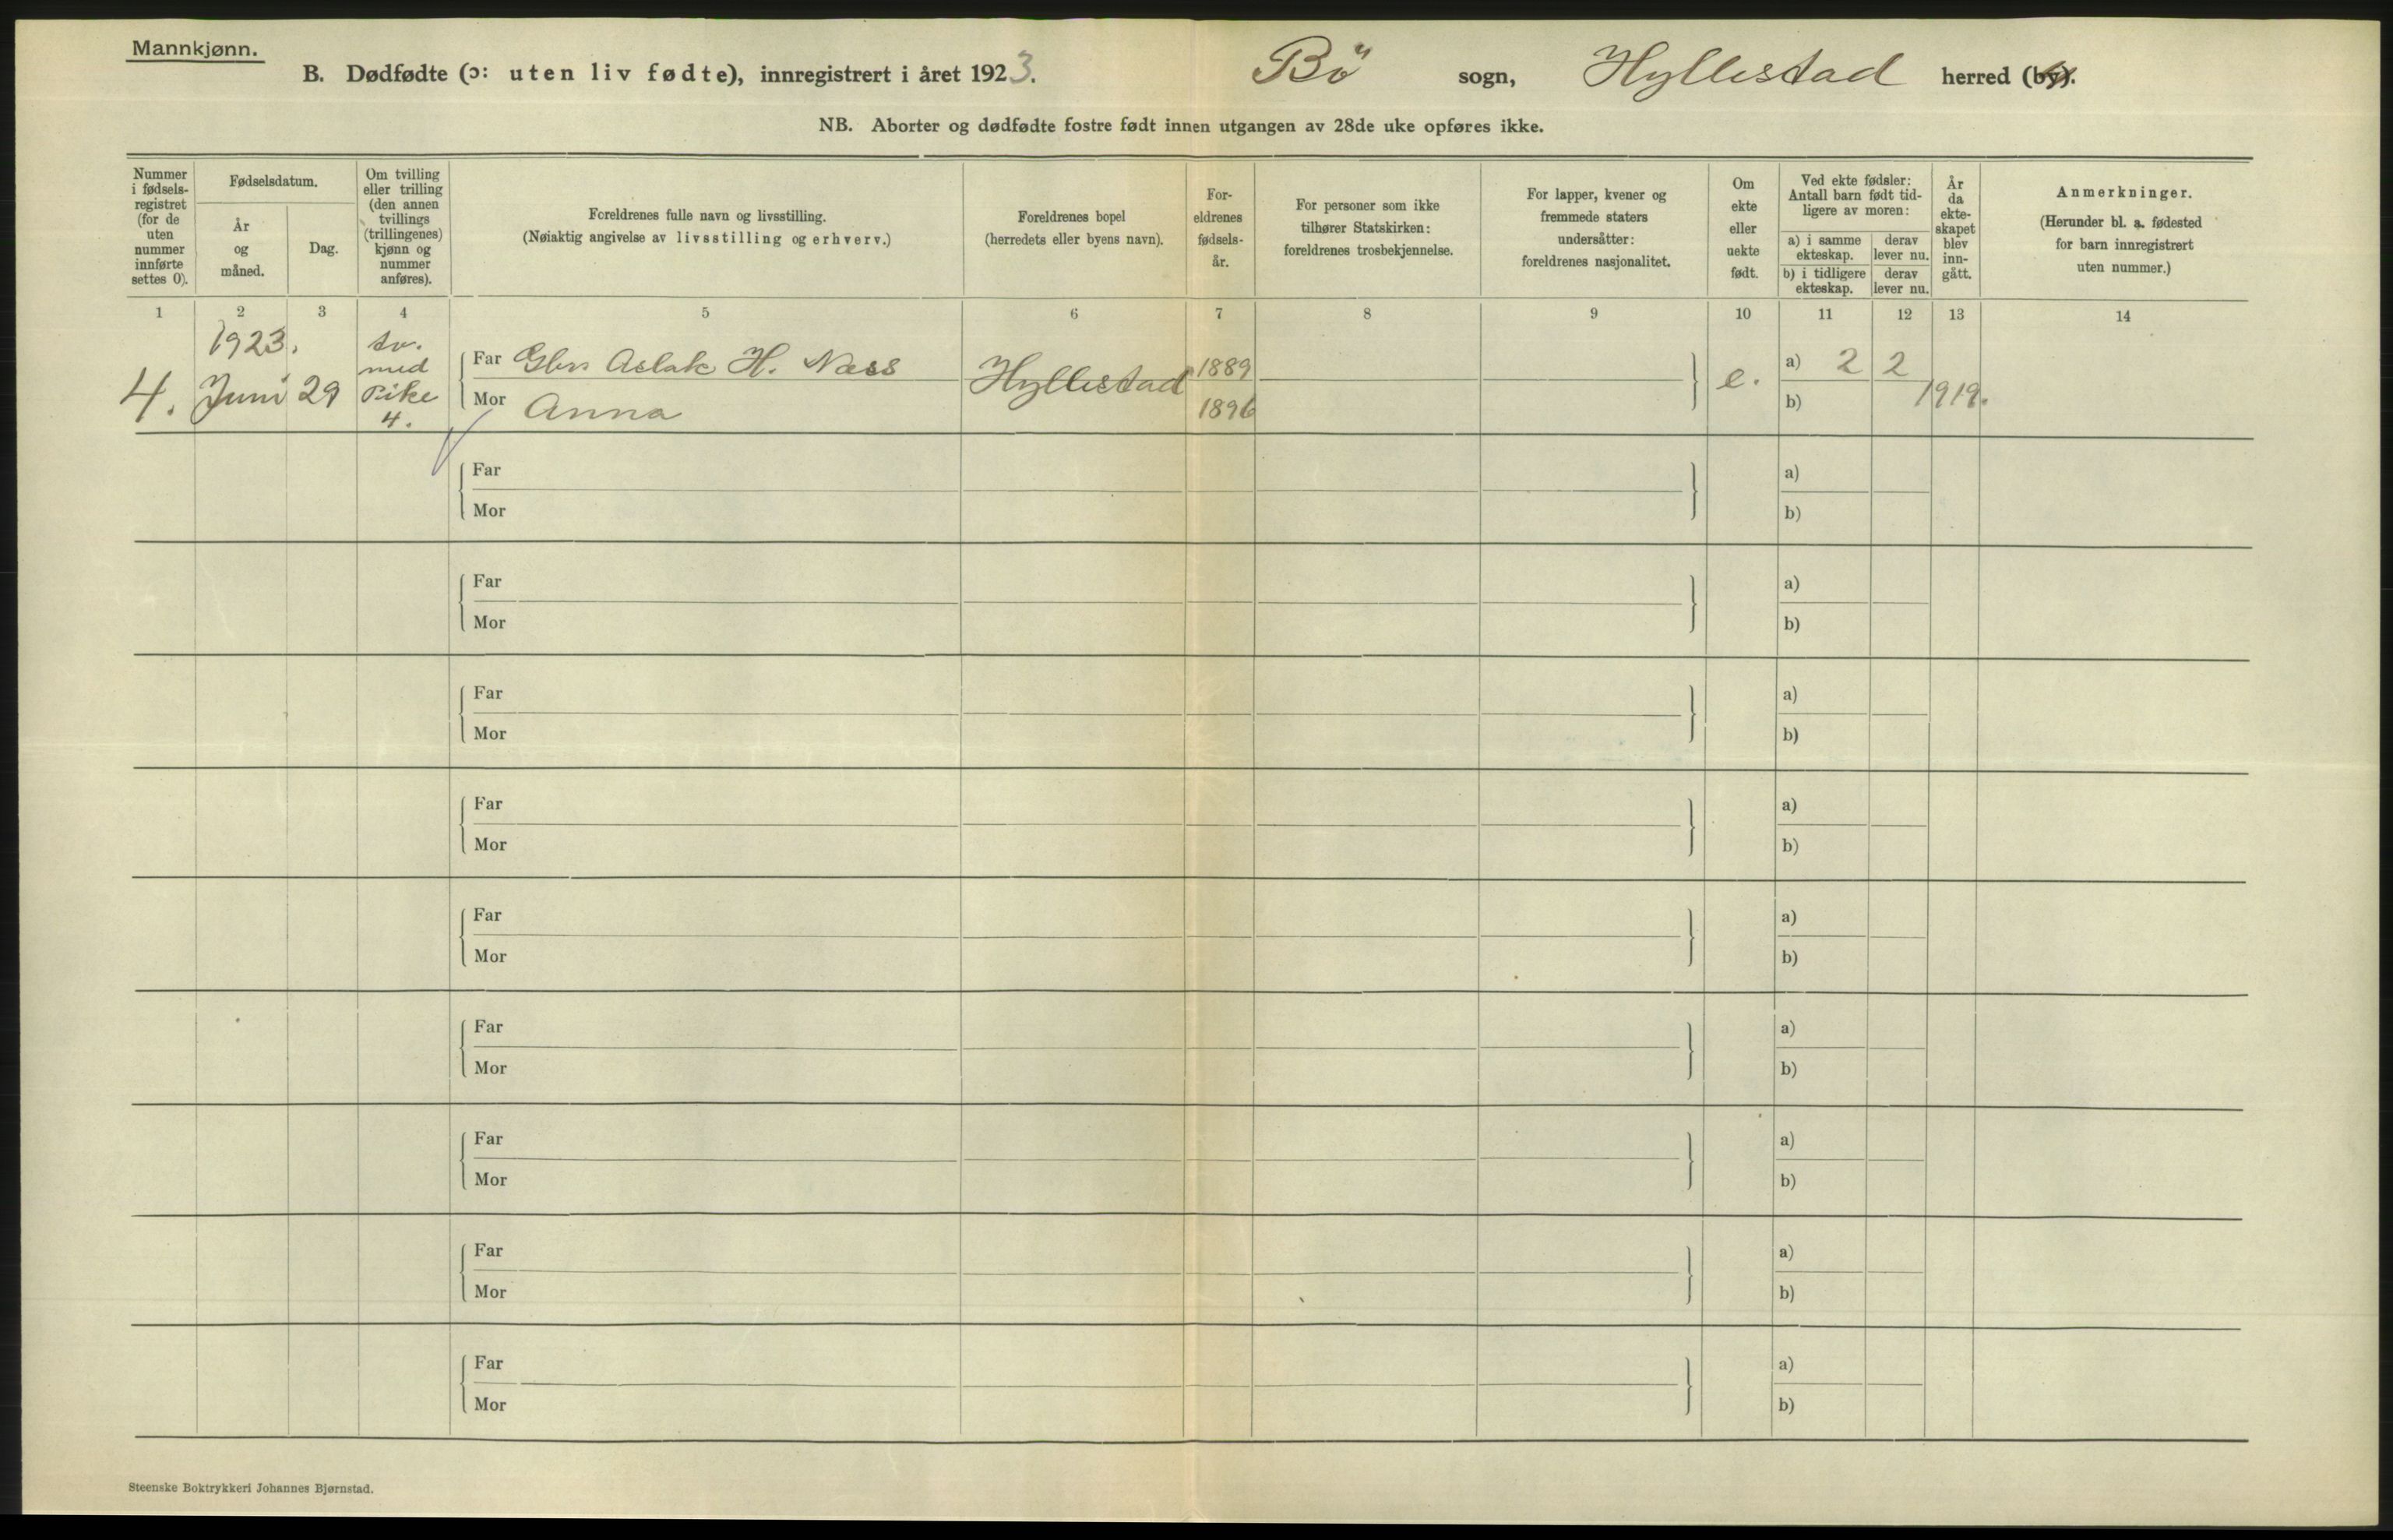 Mannkjønn.
B. Dødfødte (ɔ: uten liv fødte), innregistrert i året 1923. Bö sogn, Hyllestad herred (by).
NB. Aborter og dødfødte fostre født innen utgangen av 28de uke opføres ikke.
Nummer
i fødsels-
registret
(for de
uten
nummer
innførte
settes 0).
Fødselsdatum.
År
og
måned.
Dag.
Om tvilling
eller trilling
(den annen
tvillings
(trillingenes)
kjønn og
nummer
anføres).
Foreldrenes fulle navn og livsstilling.
(Nøiaktig angivelse av livsstilling og erhverv.)
Foreldrenes bopel
(herredets eller byens navn).
For-
eldrenes
fødsels-
år.
For personer som ikke
tilhører Statskirken:
foreldrenes trosbekjennelse.
For lapper, kvener og
fremmede staters
undersåtter:
foreldrenes nasjonalitet.
Om
ekte
eller
uekte
født.
Ved ekte fødsler:
Antall barn født tid-
ligere av moren:
a) i samme
ekteskap.
derav
lever nu.
b) i tidligere
ekteskap.
derav
lever nu.
År
da
ekte-
skapet
blev
inn-
gått.
Anmerkninger.
(Herunder bl. a. fødested
for barn innregistrert
uten nummer.)
1 2 3 4 5 6 7 8 9 10 11 12 13 14
1923. tv.
med
Far Gbr. Aslak H. Næss 1889 a) 2 2
4. Juni 29 Pike Hyllestad e. 1919.
Mor Anna 1896 b)
4.
Far a)
Mor b)
Far a)
Mor b)
Far a)
Mor b)
Far a)
Mor b)
Far a)
Mor b)
Far a)
Mor b)
Far a)
Mor b)
Far a)
Mor b)
Far a)
Mor b)
Steenske Boktrykkeri Johannes Bjørnstad.